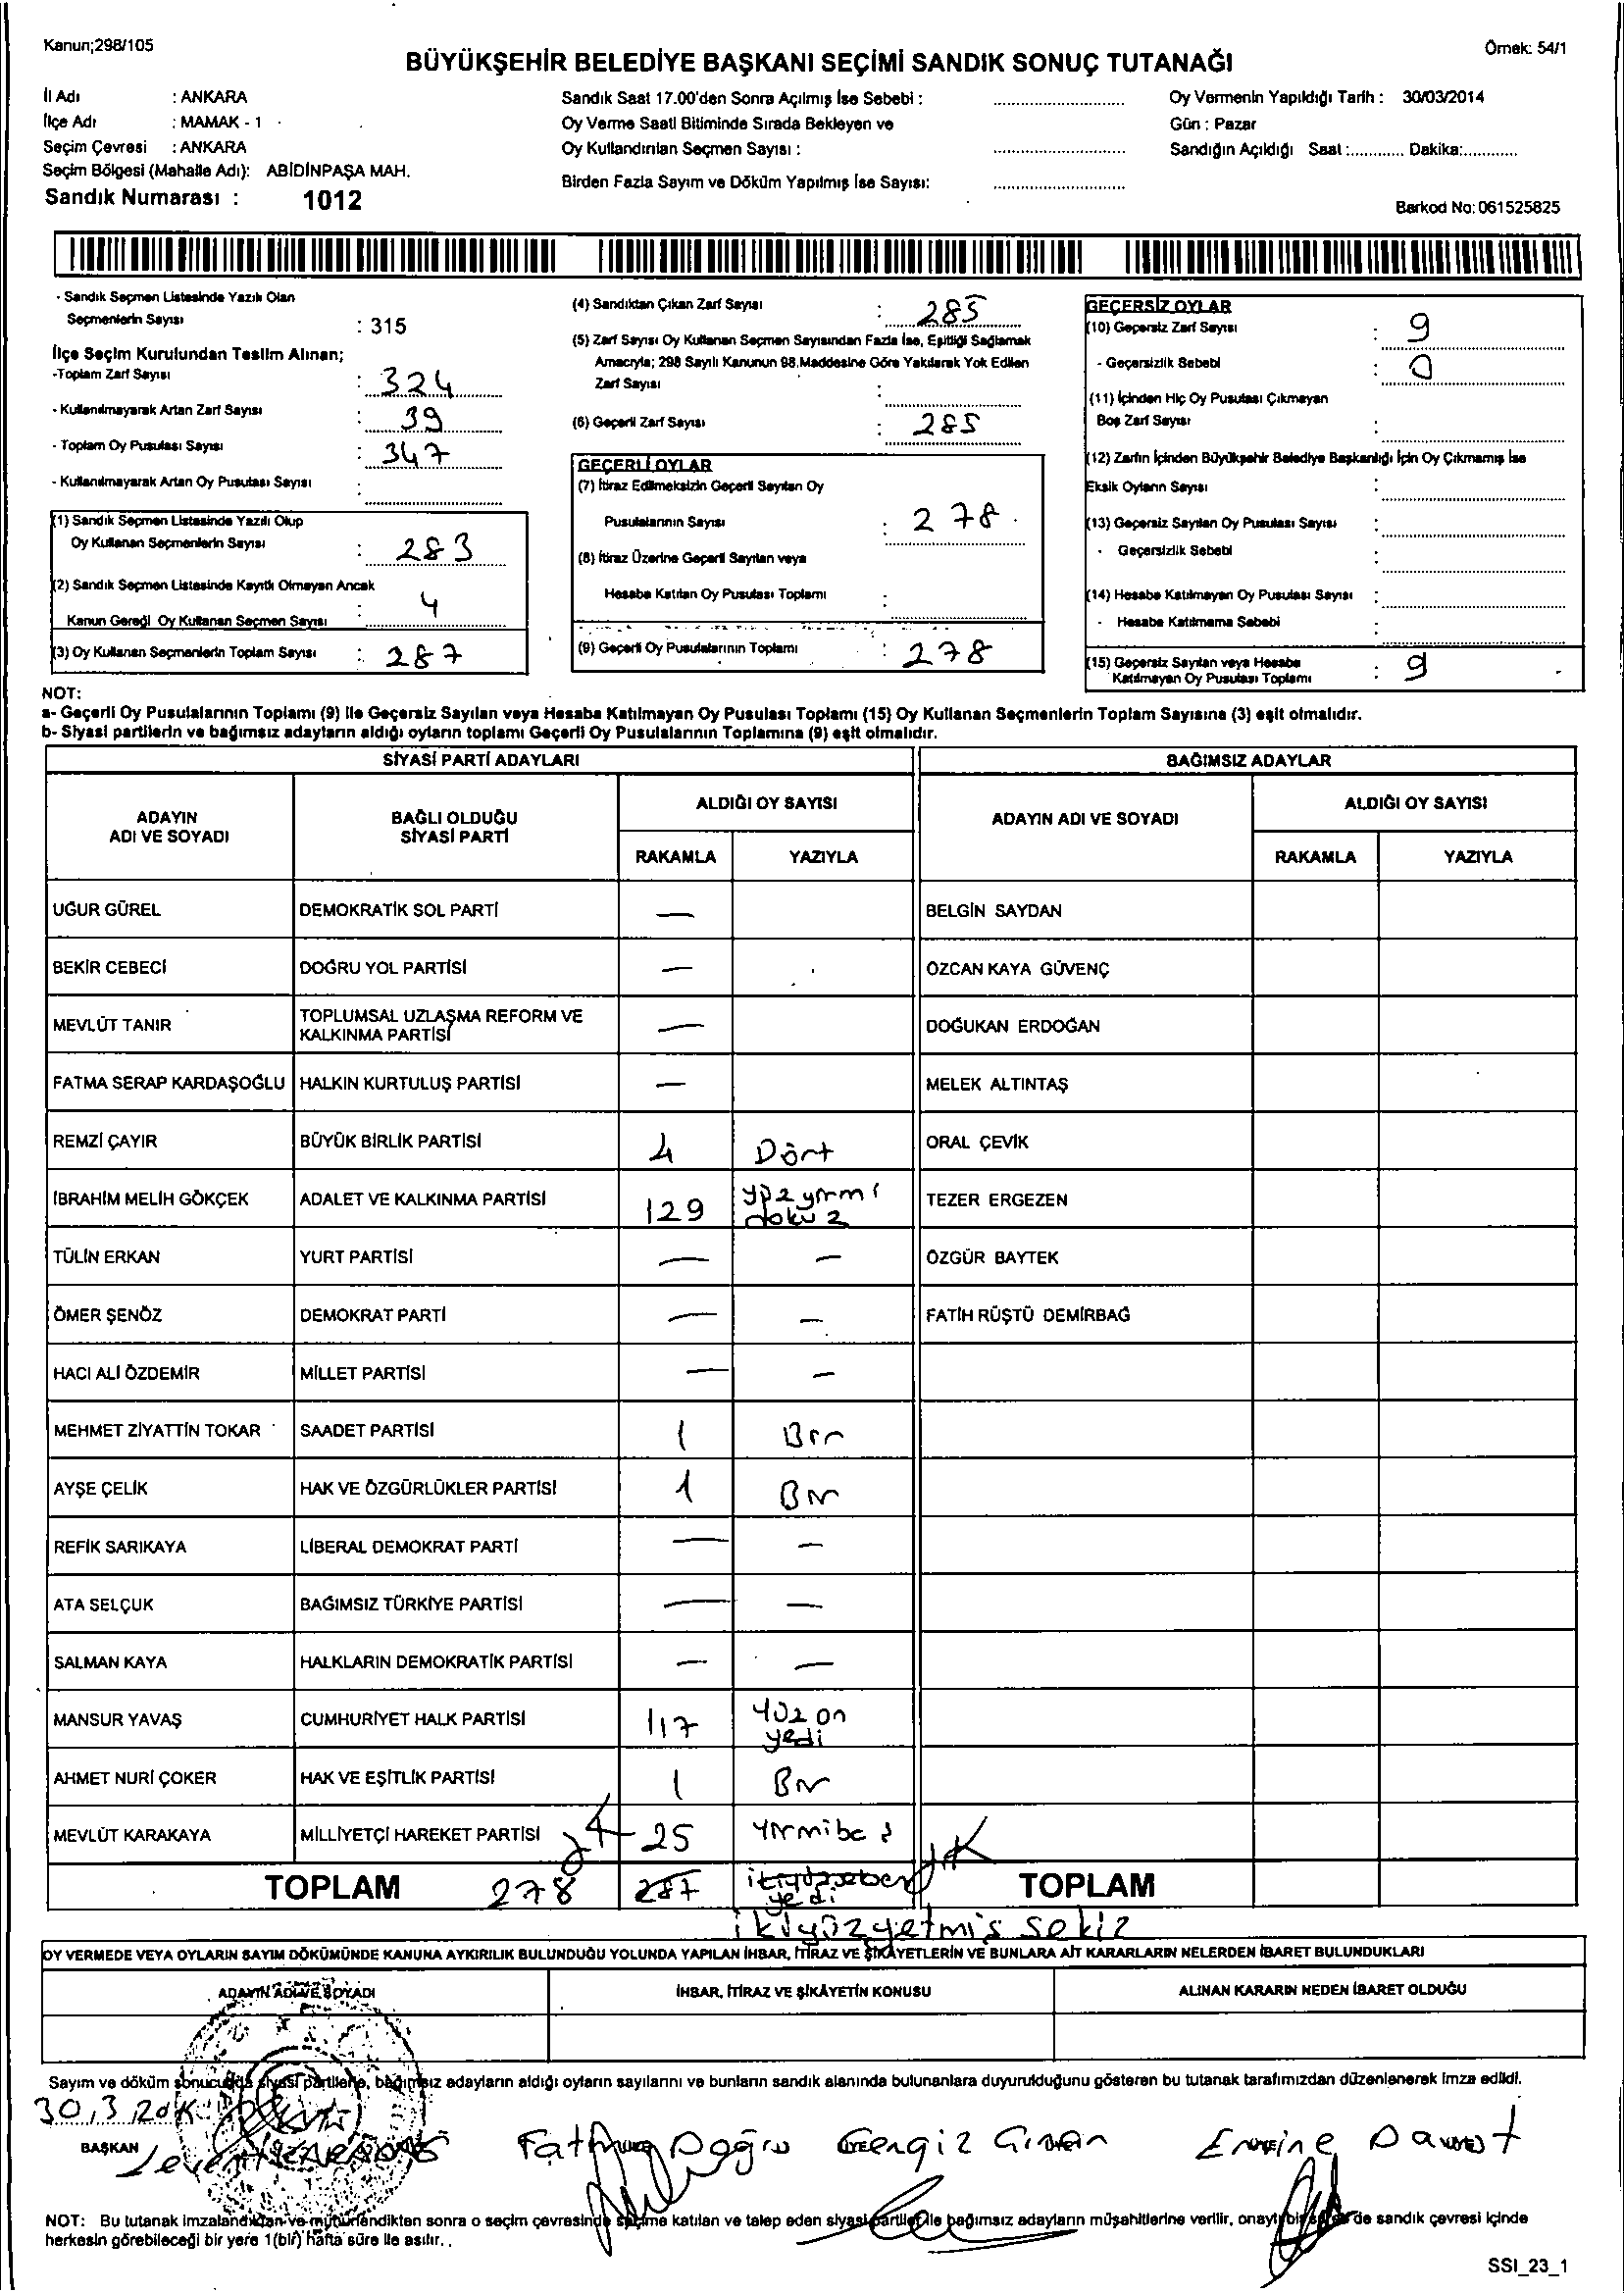 Kanun;298/105
Örnek: 54/1
BÜYÜKŞEHİR BELEDİYE BAŞKANI SEÇİMİ SANDIK SONUÇ TUTANAĞI
İl Adı : ANKARA
İlçe Adı : MAMAK - 1
Seçim Çevresi : ANKARA
Seçim Bölgesi (Mahalle Adı): ABİDİNPAŞA MAH.
Sandık Numarası : 1012
Sandık Saat 17.00'den Sonra Açılmış İse Sebebi :
Oy Verme Saati Bitiminde Sırada Bekleyen ve
Oy Kullandırılan Seçmen Sayısı :
Birden Fazla Sayım ve Döküm Yapılmış İse Sayısı:
Oy Vermenin Yapıldığı Tarih : 30/03/2014
Gün : Pazar
Sandığın Açıldığı Saat :............ Dakika:............
Barkod No: 061525825
- Sandık Seçmen Listesinde Yazılı Olan
Seçmenlerin Sayısı : 315
İlçe Seçim Kurulundan Teslim Alınan;
-Toplam Zarf Sayısı : 324
- Kullanılmayarak Artan Zarf Sayısı : 39
- Toplam Oy Pusulası Sayısı : 347
- Kullanılmayarak Artan Oy Pusulası Sayısı :
(1) Sandık Seçmen Listesinde Yazılı Olup
Oy Kullanan Seçmenlerin Sayısı : 283
(2) Sandık Seçmen Listesinde Kayıtlı Olmayan Ancak
Kanun Gereği Oy Kullanan Seçmen Sayısı : 4
(3) Oy Kullanan Seçmenlerin Toplam Sayısı : 287
(4) Sandıktan Çıkan Zarf Sayısı : 285
(5) Zarf Sayısı Oy Kullanan Seçmen Sayısından Fazla İse, Eşitliği Sağlamak
Amacıyla; 298 Sayılı Kanunun 98.Maddesine Göre Yakılarak Yok Edilen
Zarf Sayısı :
(6) Geçerli Zarf Sayısı : 285
GEÇERLİ OYLAR
(7) İtiraz Edilmeksizin Geçerli Sayılan Oy
Pusulalarının Sayısı : 278
(8) İtiraz Üzerine Geçerli Sayılan veya
Hesaba Katılan Oy Pusulası Toplamı :
(9) Geçerli Oy Pusulalarının Toplamı : 278
GEÇERSİZ OYLAR
(10) Geçersiz Zarf Sayısı : 9
- Geçersizlik Sebebi : 0
(11) İçinden Hiç Oy Pusulası Çıkmayan
Boş Zarf Sayısı :
(12) Zarfın İçinden Büyükşehir Belediye Başkanlığı İçin Oy Çıkmamış İse
Eksik Oyların Sayısı :
(13) Geçersiz Sayılan Oy Pusulası Sayısı :
- Geçersizlik Sebebi :
(14) Hesaba Katılmayan Oy Pusulası Sayısı :
- Hesaba Katılmama Sebebi :
(15) Geçersiz Sayılan veya Hesaba
Katılmayan Oy Pusulası Toplamı : 9
NOT:
a- Geçerli Oy Pusulalarının Toplamı (9) ile Geçersiz Sayılan veya Hesaba Katılmayan Oy Pusulası Toplamı (15) Oy Kullanan Seçmenlerin Toplam Sayısına (3) eşit olmalıdır.
b- Siyasi partilerin ve bağımsız adayların aldığı oyların toplamı Geçerli Oy Pusulalarının Toplamına (9) eşit olmalıdır.
SİYASİ PARTİ ADAYLARI BAĞIMSIZ ADAYLAR
ADAYIN ADI VE SOYADI BAĞLI OLDUĞU SİYASİ PARTİ ALDIĞI OY SAYISI ADAYIN ADI VE SOYADI ALDIĞI OY SAYISI
RAKAMLA YAZIYLA RAKAMLA YAZIYLA
UĞUR GÜREL DEMOKRATİK SOL PARTİ — BELGİN SAYDAN
BEKİR CEBECİ DOĞRU YOL PARTİSİ — ÖZCAN KAYA GÜVENÇ
MEVLÜT TANIR TOPLUMSAL UZLAŞMA REFORM VE KALKINMA PARTİSİ — DOĞUKAN ERDOĞAN
FATMA SERAP KARDAŞOĞLU HALKIN KURTULUŞ PARTİSİ — MELEK ALTINTAŞ
REMZİ ÇAYIR BÜYÜK BİRLİK PARTİSİ 4 Dört ORAL ÇEVİK
İBRAHİM MELİH GÖKÇEK ADALET VE KALKINMA PARTİSİ 129 yüzyirmi dokuz TEZER ERGEZEN
TÜLİN ERKAN YURT PARTİSİ — — ÖZGÜR BAYTEK
ÖMER ŞENÖZ DEMOKRAT PARTİ — — FATİH RÜŞTÜ DEMİRBAĞ
HACI ALİ ÖZDEMİR MİLLET PARTİSİ — —
MEHMET ZİYATTİN TOKAR SAADET PARTİSİ 1 Bir
AYŞE ÇELİK HAK VE ÖZGÜRLÜKLER PARTİSİ 1 Bir
REFİK SARIKAYA LİBERAL DEMOKRAT PARTİ — —
ATA SELÇUK BAĞIMSIZ TÜRKİYE PARTİSİ — —
SALMAN KAYA HALKLARIN DEMOKRATİK PARTİSİ — —
MANSUR YAVAŞ CUMHURİYET HALK PARTİSİ 117 yüz on yedi
AHMET NURİ ÇOKER HAK VE EŞİTLİK PARTİSİ 1 Bir
MEVLÜT KARAKAYA MİLLİYETÇİ HAREKET PARTİSİ 25 yirmibeş
TOPLAM 278 287 TOPLAM
ikiyüzyetmiş sekiz
OY VERMEDE VEYA OYLARIN SAYIM DÖKÜMÜNDE KANUNA AYKIRILIK BULUNDUĞU YOLUNDA YAPILAN İHBAR, İTİRAZ VE ŞİKÂYETLERİN VE BUNLARA AİT KARARLARIN NELERDEN İBARET BULUNDUKLARI
ADAYIN ADI VE SOYADI İHBAR, İTİRAZ VE ŞİKÂYETİN KONUSU ALINAN KARARIN NEDEN İBARET OLDUĞU
Sayım ve döküm sonucunda siyasi partilerle, bağımsız adayların aldığı oyların sayılarını ve bunların sandık alanında bulunanlara duyurulduğunu gösteren bu tutanak tarafımızdan düzenlenerek imza edildi.
30.3.2014
BAŞKAN
Levent Fatma Doğru Cengiz Emine
NOT: Bu tutanak imzalandıktan ve mühürlendikten sonra o seçim çevresinde seçime katılan ve talep eden siyasi partiler ile bağımsız adayların müşahitlerine verilir, onaylı bir sureti de sandık çevresi içinde
herkesin görebileceği bir yere 1(bir) hafta süre ile asılır..
SSI_23_1